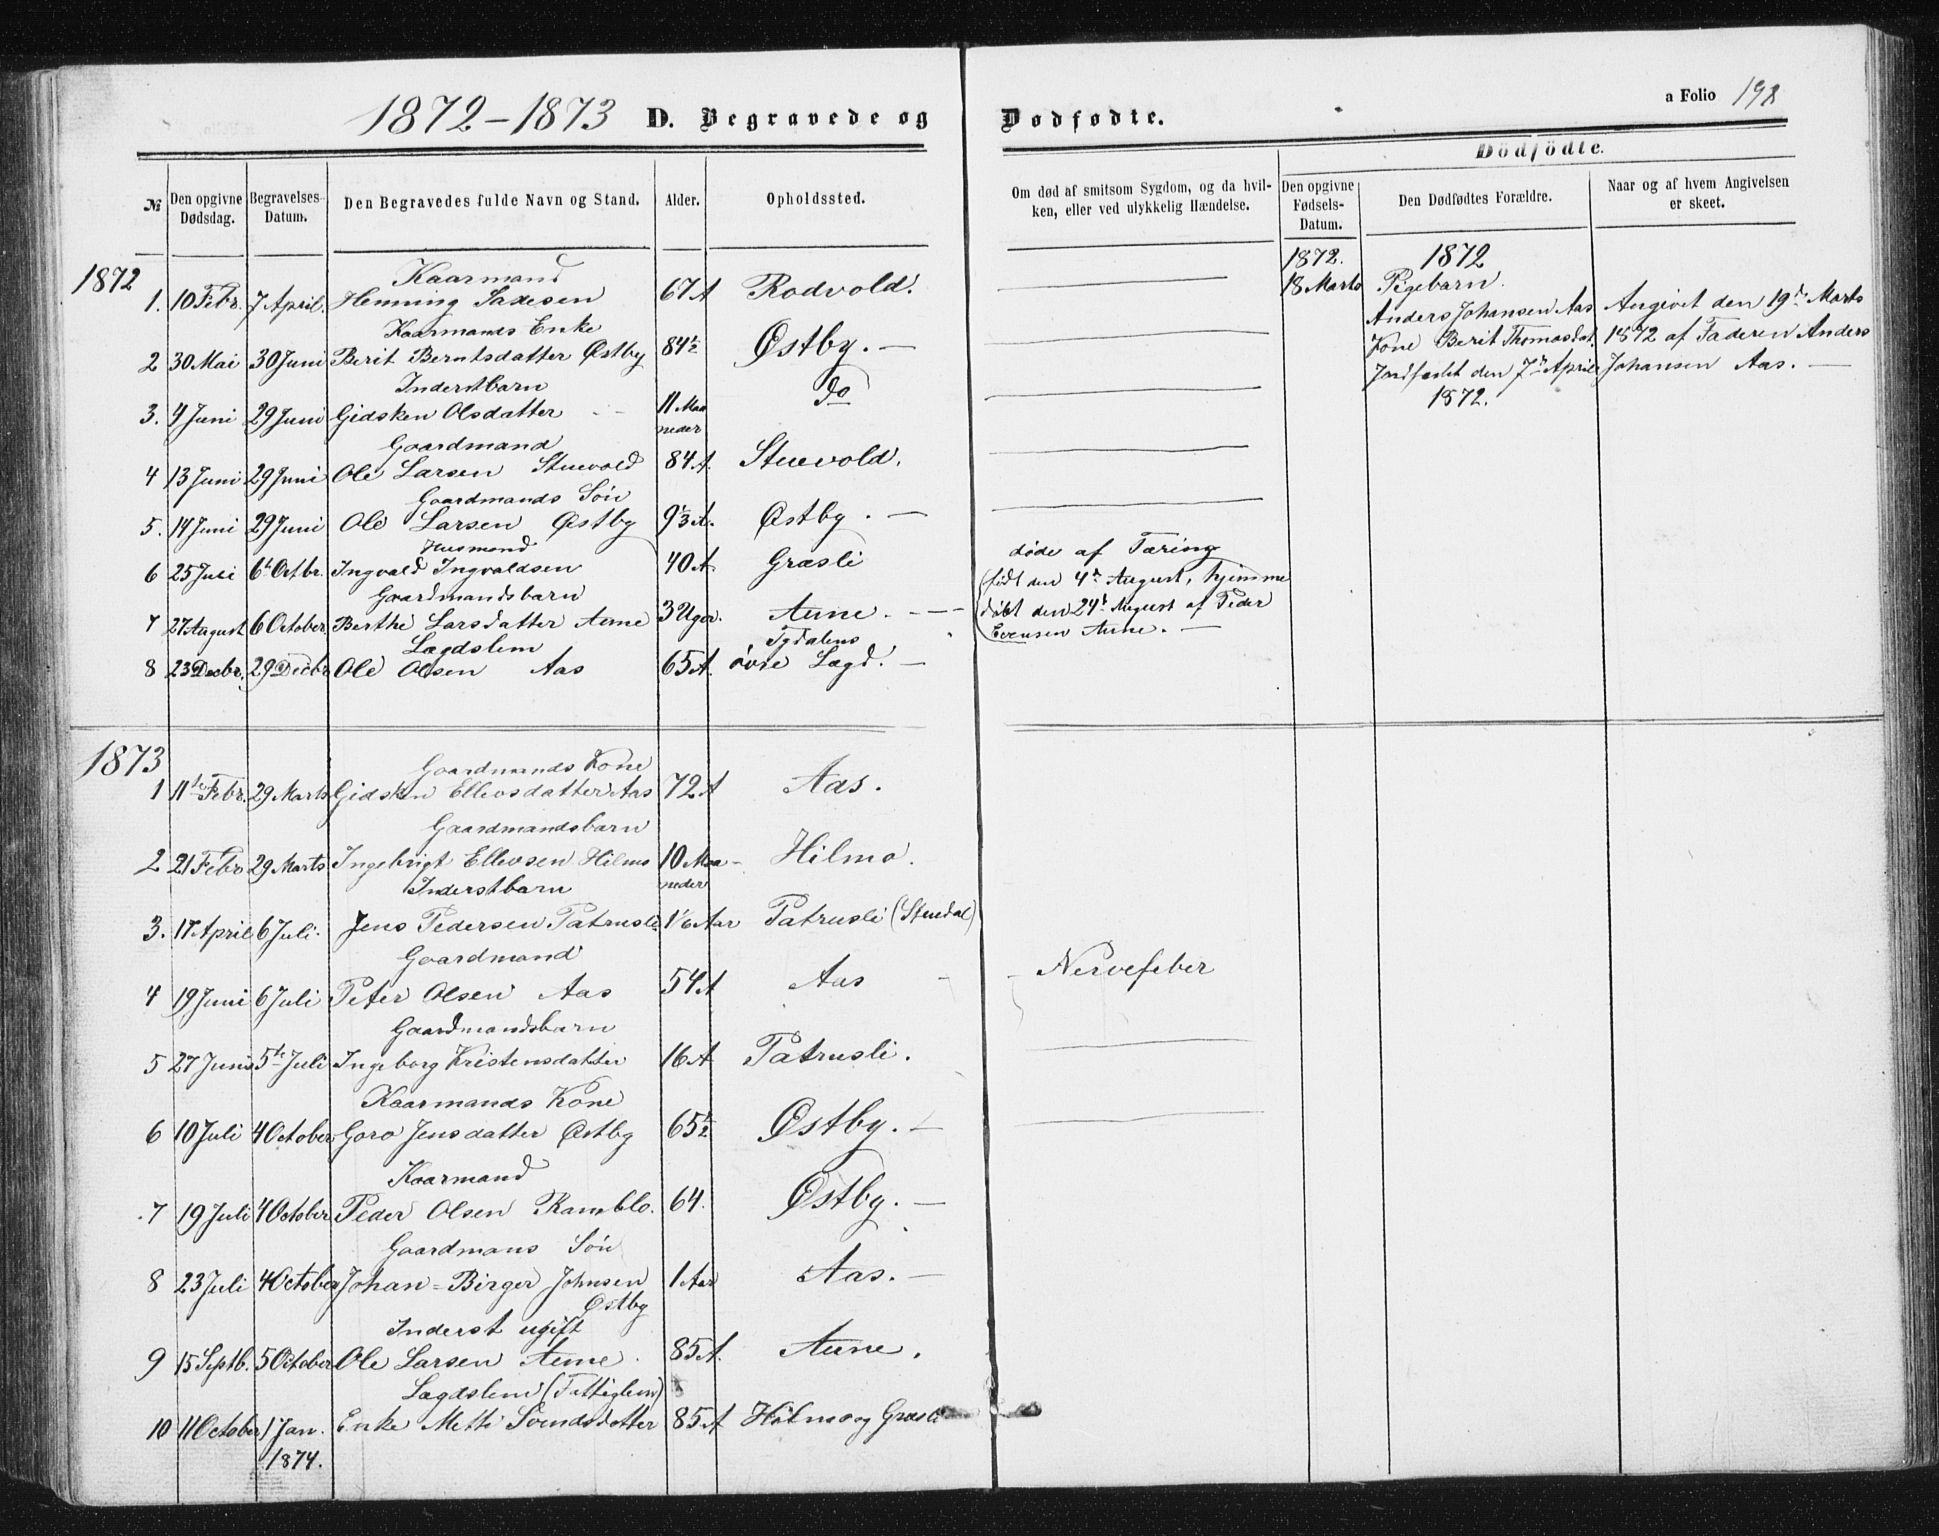 1872-1873 D. Begravede og Dødfødte.
a Folio 198
Dødfødte.
№ Den opgivne Dødsdag. Begravelses-Datum. Den Begravedes fulde Navn og Stand. Alder. Opholdssted.
Om død af smitsom Sygdom, og da hvilken, eller ved ulykkelig Hændelse. Den opgivne Fødsels-Datum. Den Dødfødtes Forældre. Naar og af hvem Angivelsen er skeet.
1872
Kaarmand
1. 10 Febr. 7 April. Henning Saxesen 67 A Rodvold.
Kaarmands Enke
2 30 Mai 30 Juni Berit Berntsdatter Østby 84½ Østby.
Inderstbarn
3. 4 Juni 29 Juni Gidsken Olsdatter 11 Maa do
neder
Gaardmand
4 13 Juni 29 Juni Ole Larsen Stuevold 84 A. Stuevold.
Gaardmands Søn
5. 14 Juni 29 Juni Ole Larsen Østby 9⅓ A. Østby.
Husmand
6 25 Juli 6t Octbr. Ingvald Ingvaldsen 40 A. Græsli døde af Tæring
Gaardmandsbarn
7 27 August 6 October. Berthe Larsdatter Aune 3 Uger. Aune.
(født den 4de August, hjemme
døbt den 24de August af Peder
Evensen Aune.
Lægdslem Tydalens
8 23 Decbr. 29 Decbr Ole Olsen Aas 65 A. øvre Lægd.
1872. 1872
18 Marts Pigebarn.
Anders Johansen Aas Angivet den 19de Marts
Kone Berit Thomasdat. 1872 af Faderen Anders
Jordfæstet den 7de April Johansen Aas.
1872.
1873
Gaardmands Kone
1 11te Febr. 29 Marts Gidsken Ellevsdatter Aas 72 A Aas.
Gaardmandsbarn
2 21 Febr 29 Marts Ingebrigt Ellevsen Hilmo 10 Maa- Hilmo.
Inderstbarn neder
3. 17 April 6 Juli. Jens Pedersen Patrusli 1 1/6 Aar Patrusli (Stuedal)
Gaardmand
4 19 Juni 6 Juli Peter Olsen Aas 54 A Aas Nervefeber
Gaardmandsbarn
5 27 Juni 5te Juli Ingeborg Kristensdatter 16 A Patrusli.
Kaarmands Kone
6 10 Juli 4 October Goro Jensdatter Østby 65½ Østby.
Kaarmand
7 19 Juli 4 October Peder Olsen Ramblo. 64. Østby.
Gaardmans Søn
8 23 Juli 4 October Johan-Birger Johnsen 1 Aar Aas.
Østby
Inderst ugift
9 15 Septb. 5 October Ole Larsen Aune. 85 A. Aune.
Lægdslem (Fattiglem)
10 11 October 1 Jan. Enke Mette Svendsdatter 85 A Hilmo og Græsli
1874.